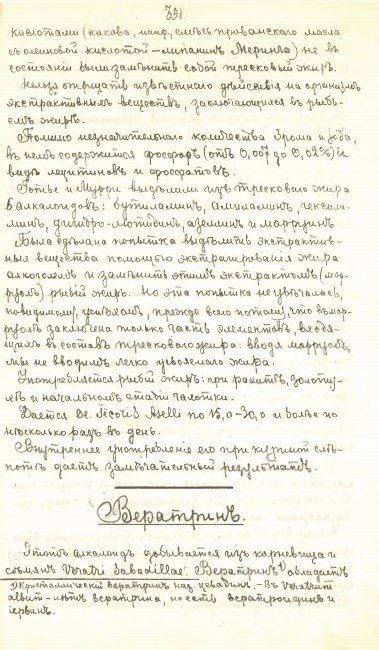 391
кислотами (какова, напр., смѣсь прованскаго масла
съ олеиновой кислотой – липанинъ Меринга) не въ
состоянiи были замѣнить собой тресковый жиръ.
Нельзя отрицать извѣстнаго дѣйствiя на организмъ
экстрактивныхъ веществъ, заключающихся въ рыбь-
емъ жирѣ.
Помимо незначительнаго количества брома и iода,
въ немъ содержится фосфоръ (отъ 0,007 до 0,02%) въ
видѣ лецитиновъ и фосфатовъ.
Готье и Мурри выдѣлили изъ трескового жира
6 алкалоидовъ: бутиламинъ, амиламинъ, гексила-
минъ, дигидро-лютидинъ, азеллинъ и морруинъ
Была сдѣлана попытка выдѣлить экстрактив-
ныя вещества помощью экстрагированiя жира
алкоголемъ и замѣнить этимъ экстрактомъ (мор-
руолъ) рыбiй жиръ. Но эта попытка не увѣнчалась,
повидимому, успѣхомъ, прежде всего потому, что въ мор-
руолѣ заключена только часть элементовъ, входя-
щихъ въ составъ трескового жира: вводя морруолъ,
мы не вводимъ легко усвояемаго жира.
Употребляется рыбiй жиръ: при рахитѣ, золоту-
хѣ и начальномъ стадiи чахотки.
Дается Ol. Jecoris Aselli по 15,0–30,0 и болѣе по
нѣсколько разъ въ день.
Внутреннее употребленiе его при куриной слѣ-
потѣ даетъ замѣчательный результатъ.
Вератринъ.
Этотъ алкалоидъ добывается изъ корневища и
сѣмянъ Veratri Sabadillae. Вератринъ¹⁾ обладаетъ
¹⁾ Кристаллическiй вератринъ наз. цевадинъ. – Въ Veratrum
album – нѣтъ вератрина, но есть вератроидинъ и
iервинъ.